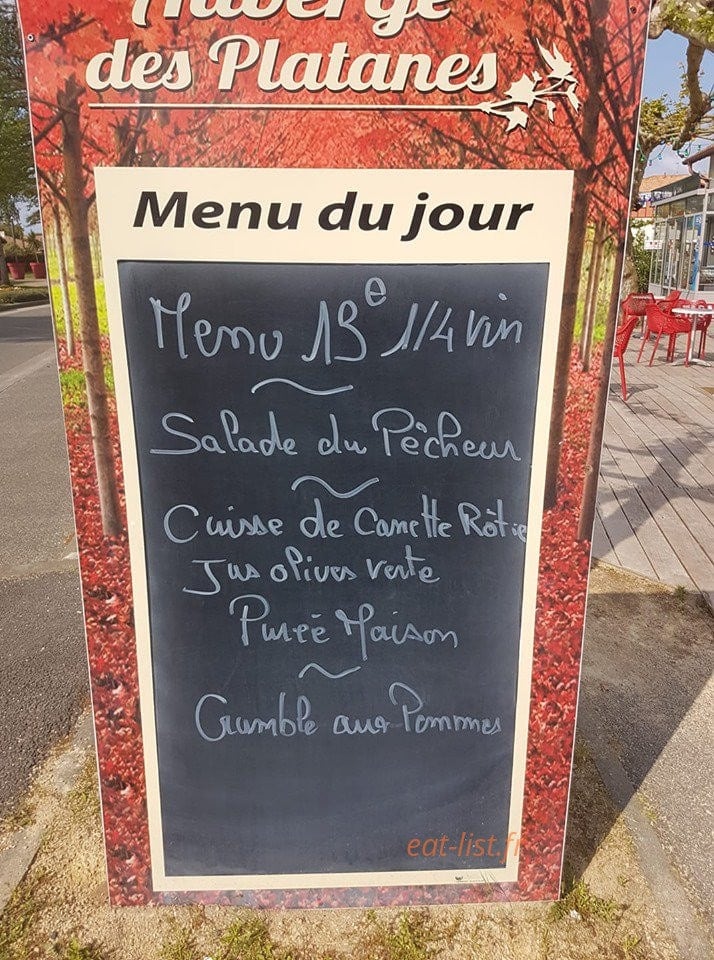 Auberge
des Platanes
Menu du jour
Menu 13e 1/4 vin
Salade du Pêcheur
Cuisse de Canette Rôtie
Jus olives verte
Purée Maison
Crumble aux Pommes
eat-list.fr